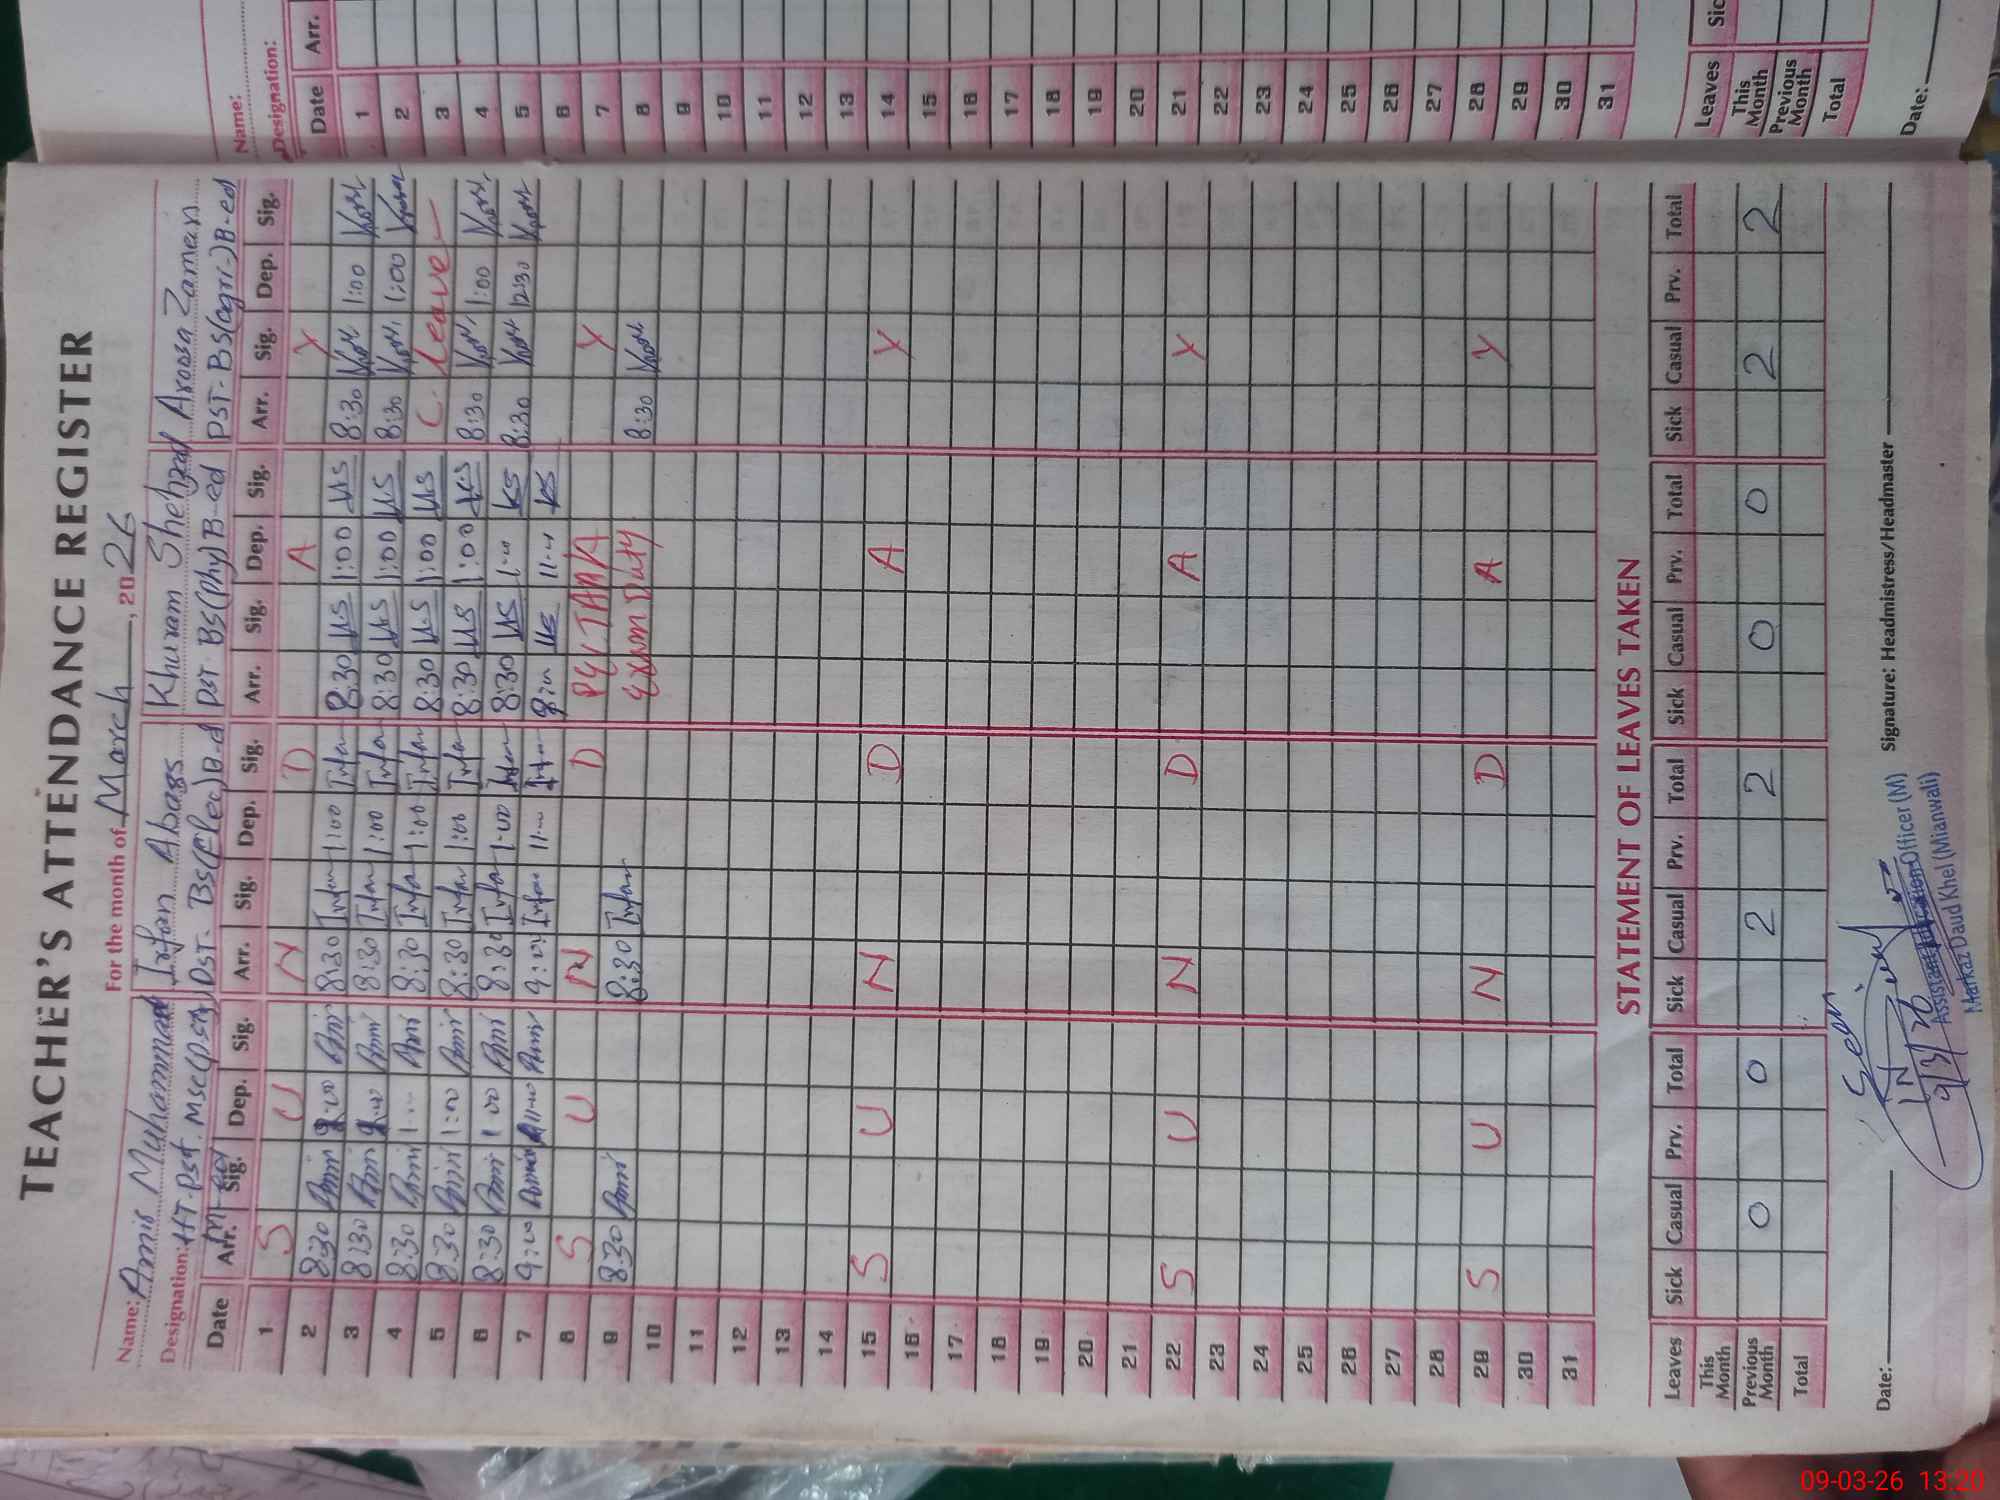 TEACHER'S ATTENDANCE REGISTER
For the month of March, 2026
Name: Amir Muhammad Irfan Abass Khuram Shehzad Aroosa Zamein
Designation: HT-Pst. Msc(Pst) DST- BS(Elec)B-d PST BS(Phy)B-ed PST-BS(agri-)B-ed
M-ed
Date Arr. Sig. Dep. Sig. Arr. Sig. Dep. Sig. Arr. Sig. Dep. Sig. Arr. Sig. Dep. Sig.
1 S U N D A Y
2 8:30 Amir 9:00 Amir 8:30 Irfan 1:00 Irfan 8:30 KS 1:00 KS 8:30 1:00
3 8:30 Amir 9:00 Amir 8:30 Irfan 1:00 Irfan 8:30 KS 1:00 KS 8:30 1:00
4 8:30 Amir 1:-- Amir 8:30 Irfan 1:00 Irfan 8:30 KS 1:00 KS C. leave
5 8:30 Amir 1:00 Amir 8:30 Irfan 1:00 Irfan 8:30 KS 1:00 KS 8:30 1:00
6 8:30 Amir 1:00 Amir 8:30 Irfan 1:00 Irfan 8:30 KS 1-- KS 8:30 12:30
7 9:00 Amir 11-00 Amir 9:00 Irfan 11-- Irfan KS 11-- KS
8 S U N D Y
9 8:30 Amir 8:30 Irfan Exam Duty 8:30
10
11
12
13
14
15 S U N D A Y
16
17
18
19
20
21
22 S U N D A Y
23
24
25
26
27
28
29 S U N D A Y
30
31
STATEMENT OF LEAVES TAKEN
Leaves Sick Casual Prv. Total Sick Casual Prv. Total Sick Casual Prv. Total Sick Casual Prv. Total
This Month
Previous Month 0 0 2 2 0 0 2 2
Total
Date: Signature: Headmistress/Headmaster
Seen
9/3/26
Assistant Education Officer (M)
Markaz Daud Khel (Mianwali)
Name:
Designation:
Date Arr.
1
2
3
4
5
6
7
8
9
10
11
12
13
14
15
16
17
18
19
20
21
22
23
24
25
26
27
28
29
30
31
Leaves Sic
This Month
Previous Month
Total
Date:
09-03-26 13:20